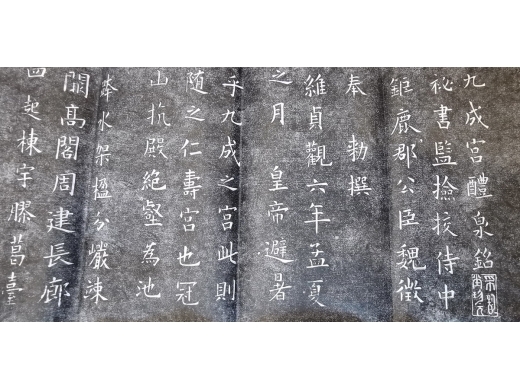 九成宮醴泉銘
祕書監撿挍侍中
鉅鹿郡公臣魏徵
奉 勑撰
維貞觀六年孟夏
之月 皇帝避暑
乎九成之宮此則
随之仁壽宮也冠
山抗殿絶壑為池
水架楹分巖竦
闕髙閣周建長廊
四起棟宇膠葛臺